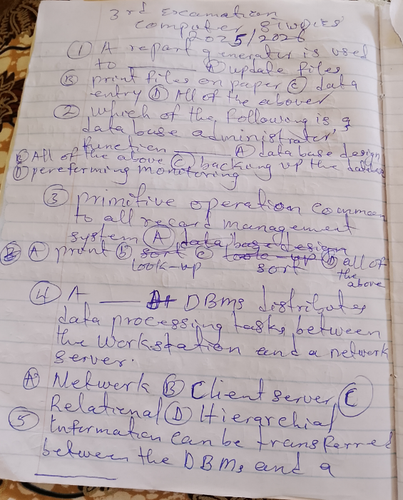 3rd Examination
Computer Studies
2025/2026
① A report generator is used
to ___ Ⓐ update files
Ⓑ print files on paper Ⓒ data
entry Ⓓ All of the above
② which of the following is a
database administrater
function ___ Ⓐ database design
Ⓑ All of the above Ⓒ backing up the database
Ⓓ pereforming monitoring
③ primitive operation common
to all record management
system Ⓐ data base design
Ⓐ print Ⓑ sort Ⓒ look-up Ⓓ all of
look-up sort the
above
④ A ___ DBMS distributes
data processing tasks between
the workstation and a network
server.
Ⓐ Network Ⓑ Client server Ⓒ
Relational Ⓓ Hierarchial
⑤ Information can be transferred
between the DBMs and a
___